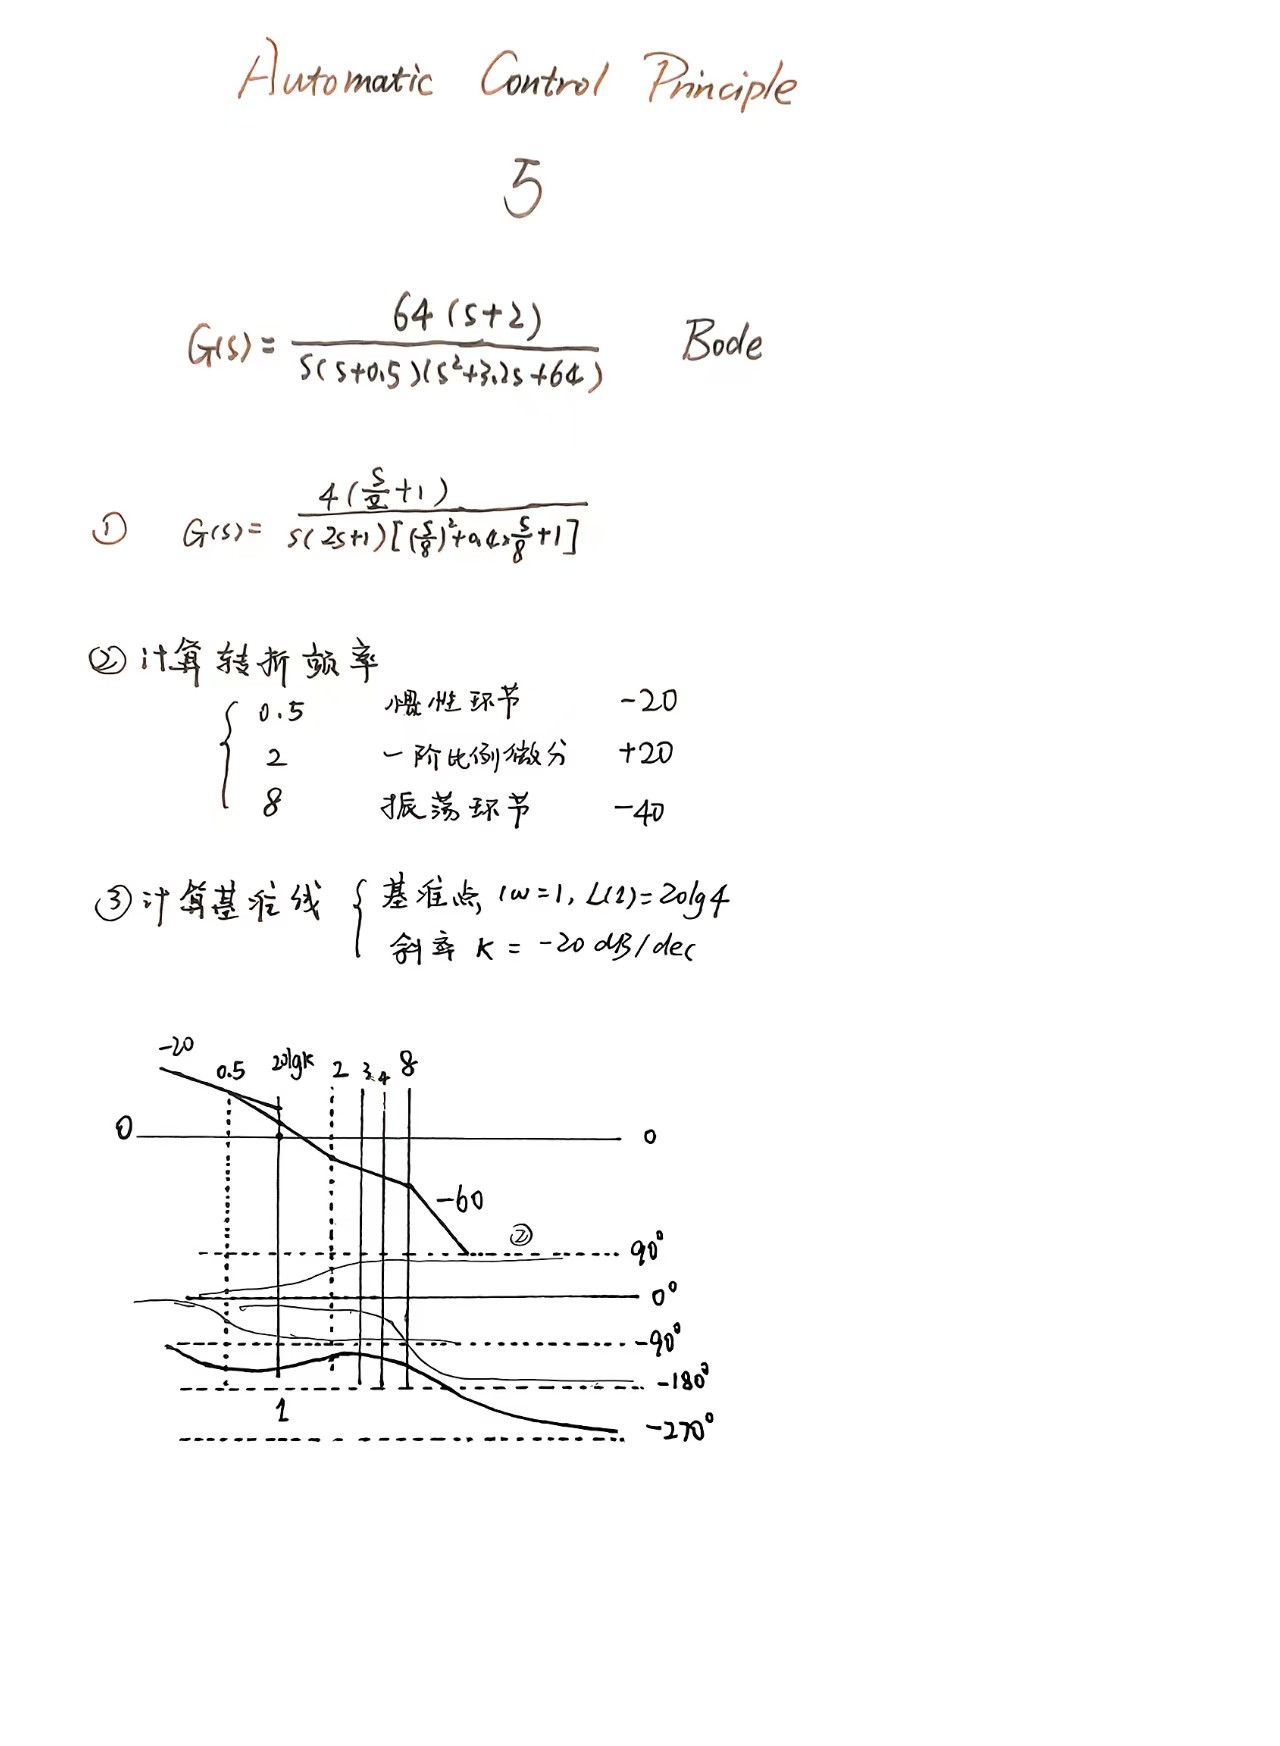 Automatic Control Principle
5
G(s) = 64(s+2) / s(s+0.5)(s²+3.2s+64) Bode
① G(s) = 4(s/2+1) / s(2s+1)[(s/8)²+0.4×s/8+1]
② 计算转折频率
0.5 惯性环节 -20
2 一阶比例微分 +20
8 振荡环节 -40
③ 计算基准线 { 基准点 (ω=1, L(1)=20lg4
斜率 K = -20 dB/dec
-20 0.5 20lgK 2 3 4 8
0 0
-60
② 90°
0°
-90°
-180°
1
-270°